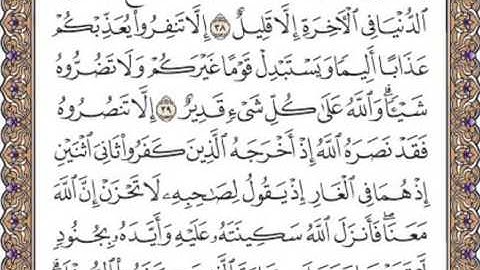 ٱلدُّنْيَا فِى ٱلْأَخِرَةِ إِلَّا قَلِيلٌ ٣٨ إِلَّا تَنفِرُوا۟ يُعَذِّبْكُمْ
عَذَابًا أَلِيمًا وَيَسْتَبْدِلْ قَوْمًا غَيْرَكُمْ وَلَا تَضُرُّوهُ
شَيْـًٔا ۗ وَٱللَّهُ عَلَىٰ كُلِّ شَىْءٍ قَدِيرٌ ٣٩ إِلَّا تَنصُرُوهُ
فَقَدْ نَصَرَهُ ٱللَّهُ إِذْ أَخْرَجَهُ ٱلَّذِينَ كَفَرُوا۟ ثَانِىَ ٱثْنَيْنِ
إِذْ هُمَا فِى ٱلْغَارِ إِذْ يَقُولُ لِصَـٰحِبِهِۦ لَا تَحْزَنْ إِنَّ ٱللَّهَ
مَعَنَا ۖ فَأَنزَلَ ٱللَّهُ سَكِينَتَهُۥ عَلَيْهِ وَأَيَّدَهُۥ بِجُنُودٍ